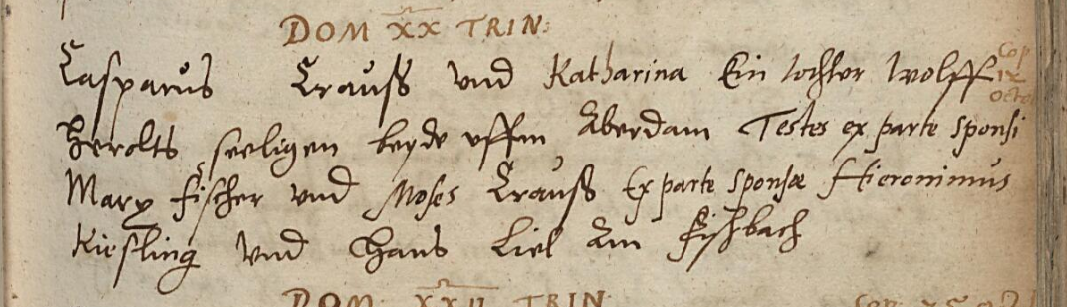 DOM XX TRIN:
Casparus Crauß vnd Katharina Ein tochter Wolff
Cop
IX
Octo
Herolts seeligen beyde vffm Aberdam Testes ex parte sponsi
Marx Fischer vnd Moses Crauß Ex parte sponsæ Hieronimus
Kiesling vnd Hans Liel am Fischbach
DOM XXII TRIN
Cop